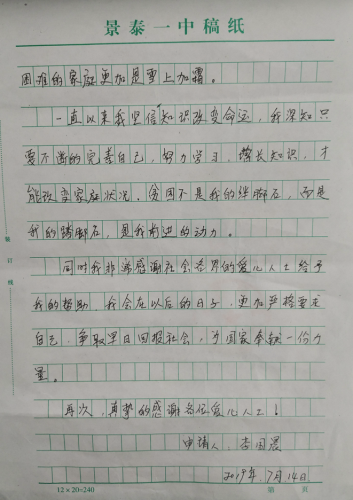 景泰一中稿纸
困难的家庭更加是雪上加霜。
一直以来我坚信知识改变命运，我深知只
要不断的完善自己，努力学习，增长知识，才
能改变家庭状况。贫困不是我的绊脚石，而是
我的踏脚石，是我前进的动力。
同时我非常感谢社会各界的爱心人士给予
我的帮助，我会在以后的日子，更加严格要求
自己，争取早日回报社会，为国家奉献一份力
量。
再次，真挚的感谢各位爱心人士！
申请人：李国晨
2019年7月14日
12×20=240 第 页
装订线